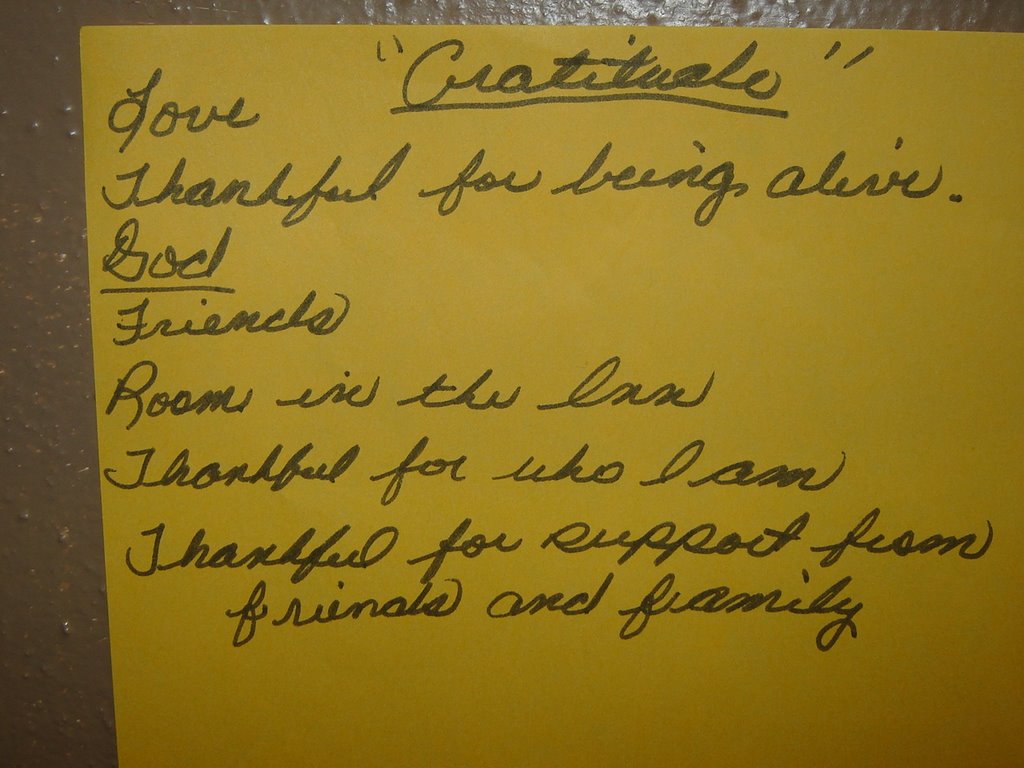 "Gratitude"
Love
Thankful for being alive.
God
Friends
Room in the Inn
Thankful for who I am
Thankful for support from
friends and family